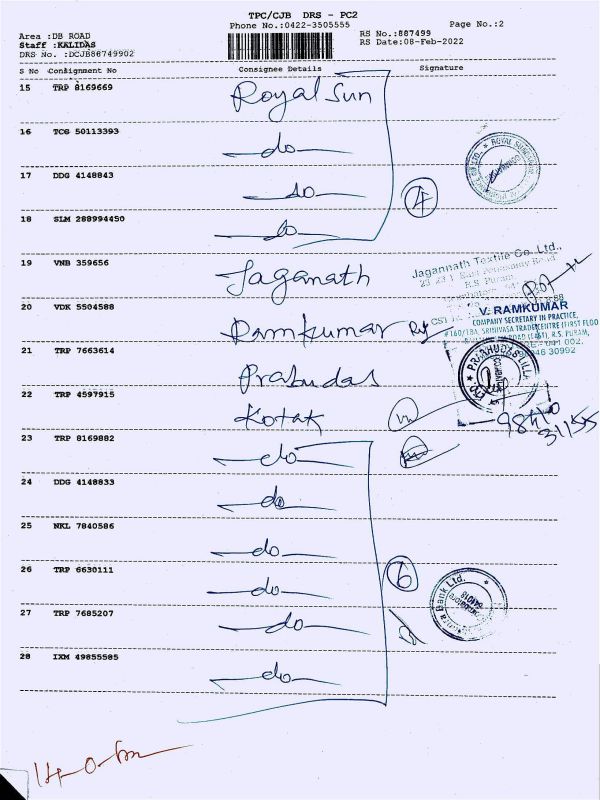 TPC/CJB DRS - PC2
Phone No.:0422-3505555
Page No.:2
Area :DB ROAD
Staff :KALIDAS
DRS No. :DCJB88749902
RS No.:887499
RS Date:08-Feb-2022
S No Consignment No Consignee Details Signature
15 TRP 8169669 Royal Sun
16 TCG 50113393 do
17 DDG 4148843 do
18 SLM 288994450 do
4
ROYAL SUNDARAM
19 VNB 359656 Jaganath
Jagannath Textile Co. Ltd.,
R.S Puram
20 VDK 5504588 Ramkumar
V. RAMKUMAR
COMPANY SECRETARY IN PRACTICE,
#160/181, SRINIVASA TRADECENTRE (FIRST FLOO
R.S. PURAM,
641 002.
30992
21 TRP 7663614 Prabudas
PRABHUDAS LILLA
22 TRP 4597915 Kotak
31155
23 TRP 8169882 do
24 DDG 4148833 do
25 NKL 7840586 do
26 TRP 6630111 do
6
Bank Ltd.
27 TRP 7685207 do
28 IXM 49855585 do